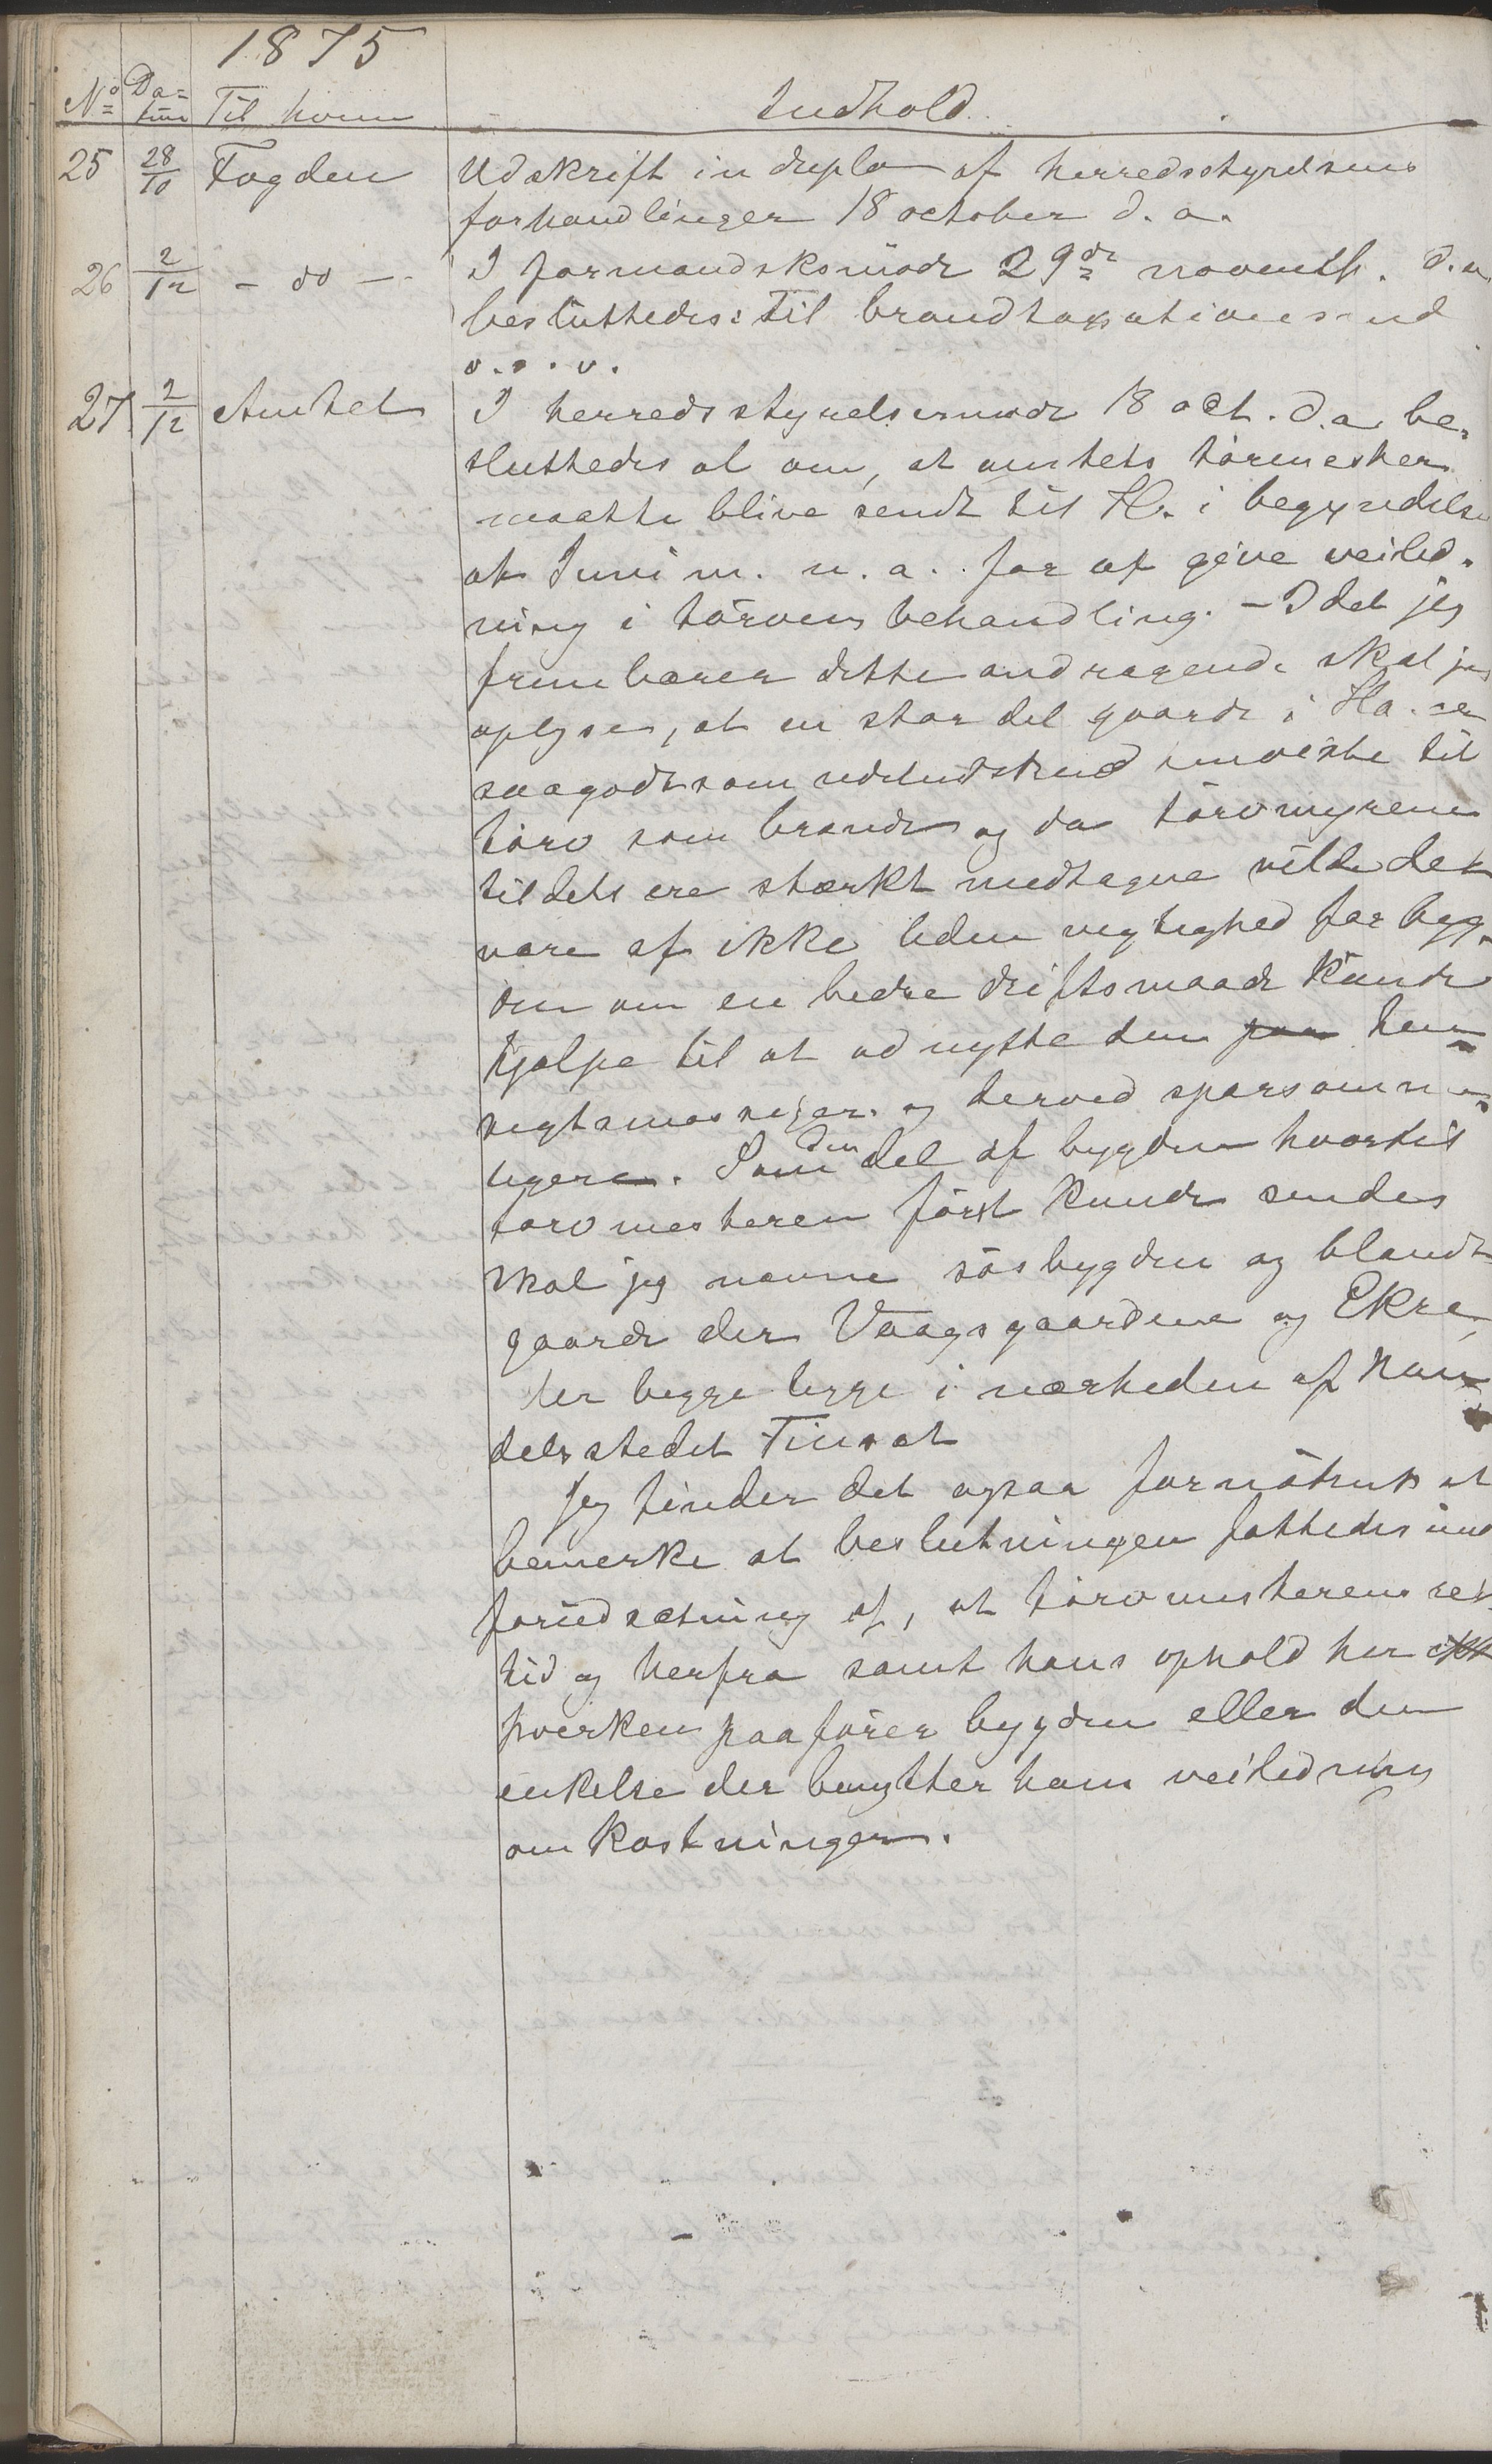 1875
No Da= tum Til hvem Indhold.
25 28/10 Fogden Udskrift in duplo af herredsstyrelsens
forhandlinger 18 october d. a.
26 2/12 - do - I formandsksmöde 29de novemb. d. a.
besluttedes: Til brandtaxationsmd
o. s. v.
27 2/12 Amtet I herredsstyrelsesmøde 18 oct. d. a. be-
sluttedes at om, at amtets törvmester
maatte blive sendt til H. i begyndelse
af Juni m. n. a. for at give veiled-
ning i törvens behandling. - Idet jeg
frembærer dette andragende skal jeg
oplyse, at en stor del gaarde i Ha. er
saagodtsom udelukkend henviste til
törv som brænde og da törvmyrene
tildels ere stærkt medtagne vilde det
være af ikke liden vigtighed for byg-
den om en bedre driftsmaade kunde
hjælpe til at udnytte dem paa hen-
sigtsmæssigere og derved sparsomme-
ligere. Som den del af bygden hvortil
torvmesteren först kunde sendes
skal jeg nævne søsbygden og blandt
gaarde der Vaagsgaardene og Ekre,
der begge ligge i nærheden af han-
delsstedet Tinsat
Jeg finder det ogsaa fornødent at
bemerke at beslutningen fattedes und
forudsætning af, at törvmesterens rei
hid og herfra samt hans ophold her ikk
hverken paaförer bygden eller den
enkelte der benytter hans veiledning
omkostninger.